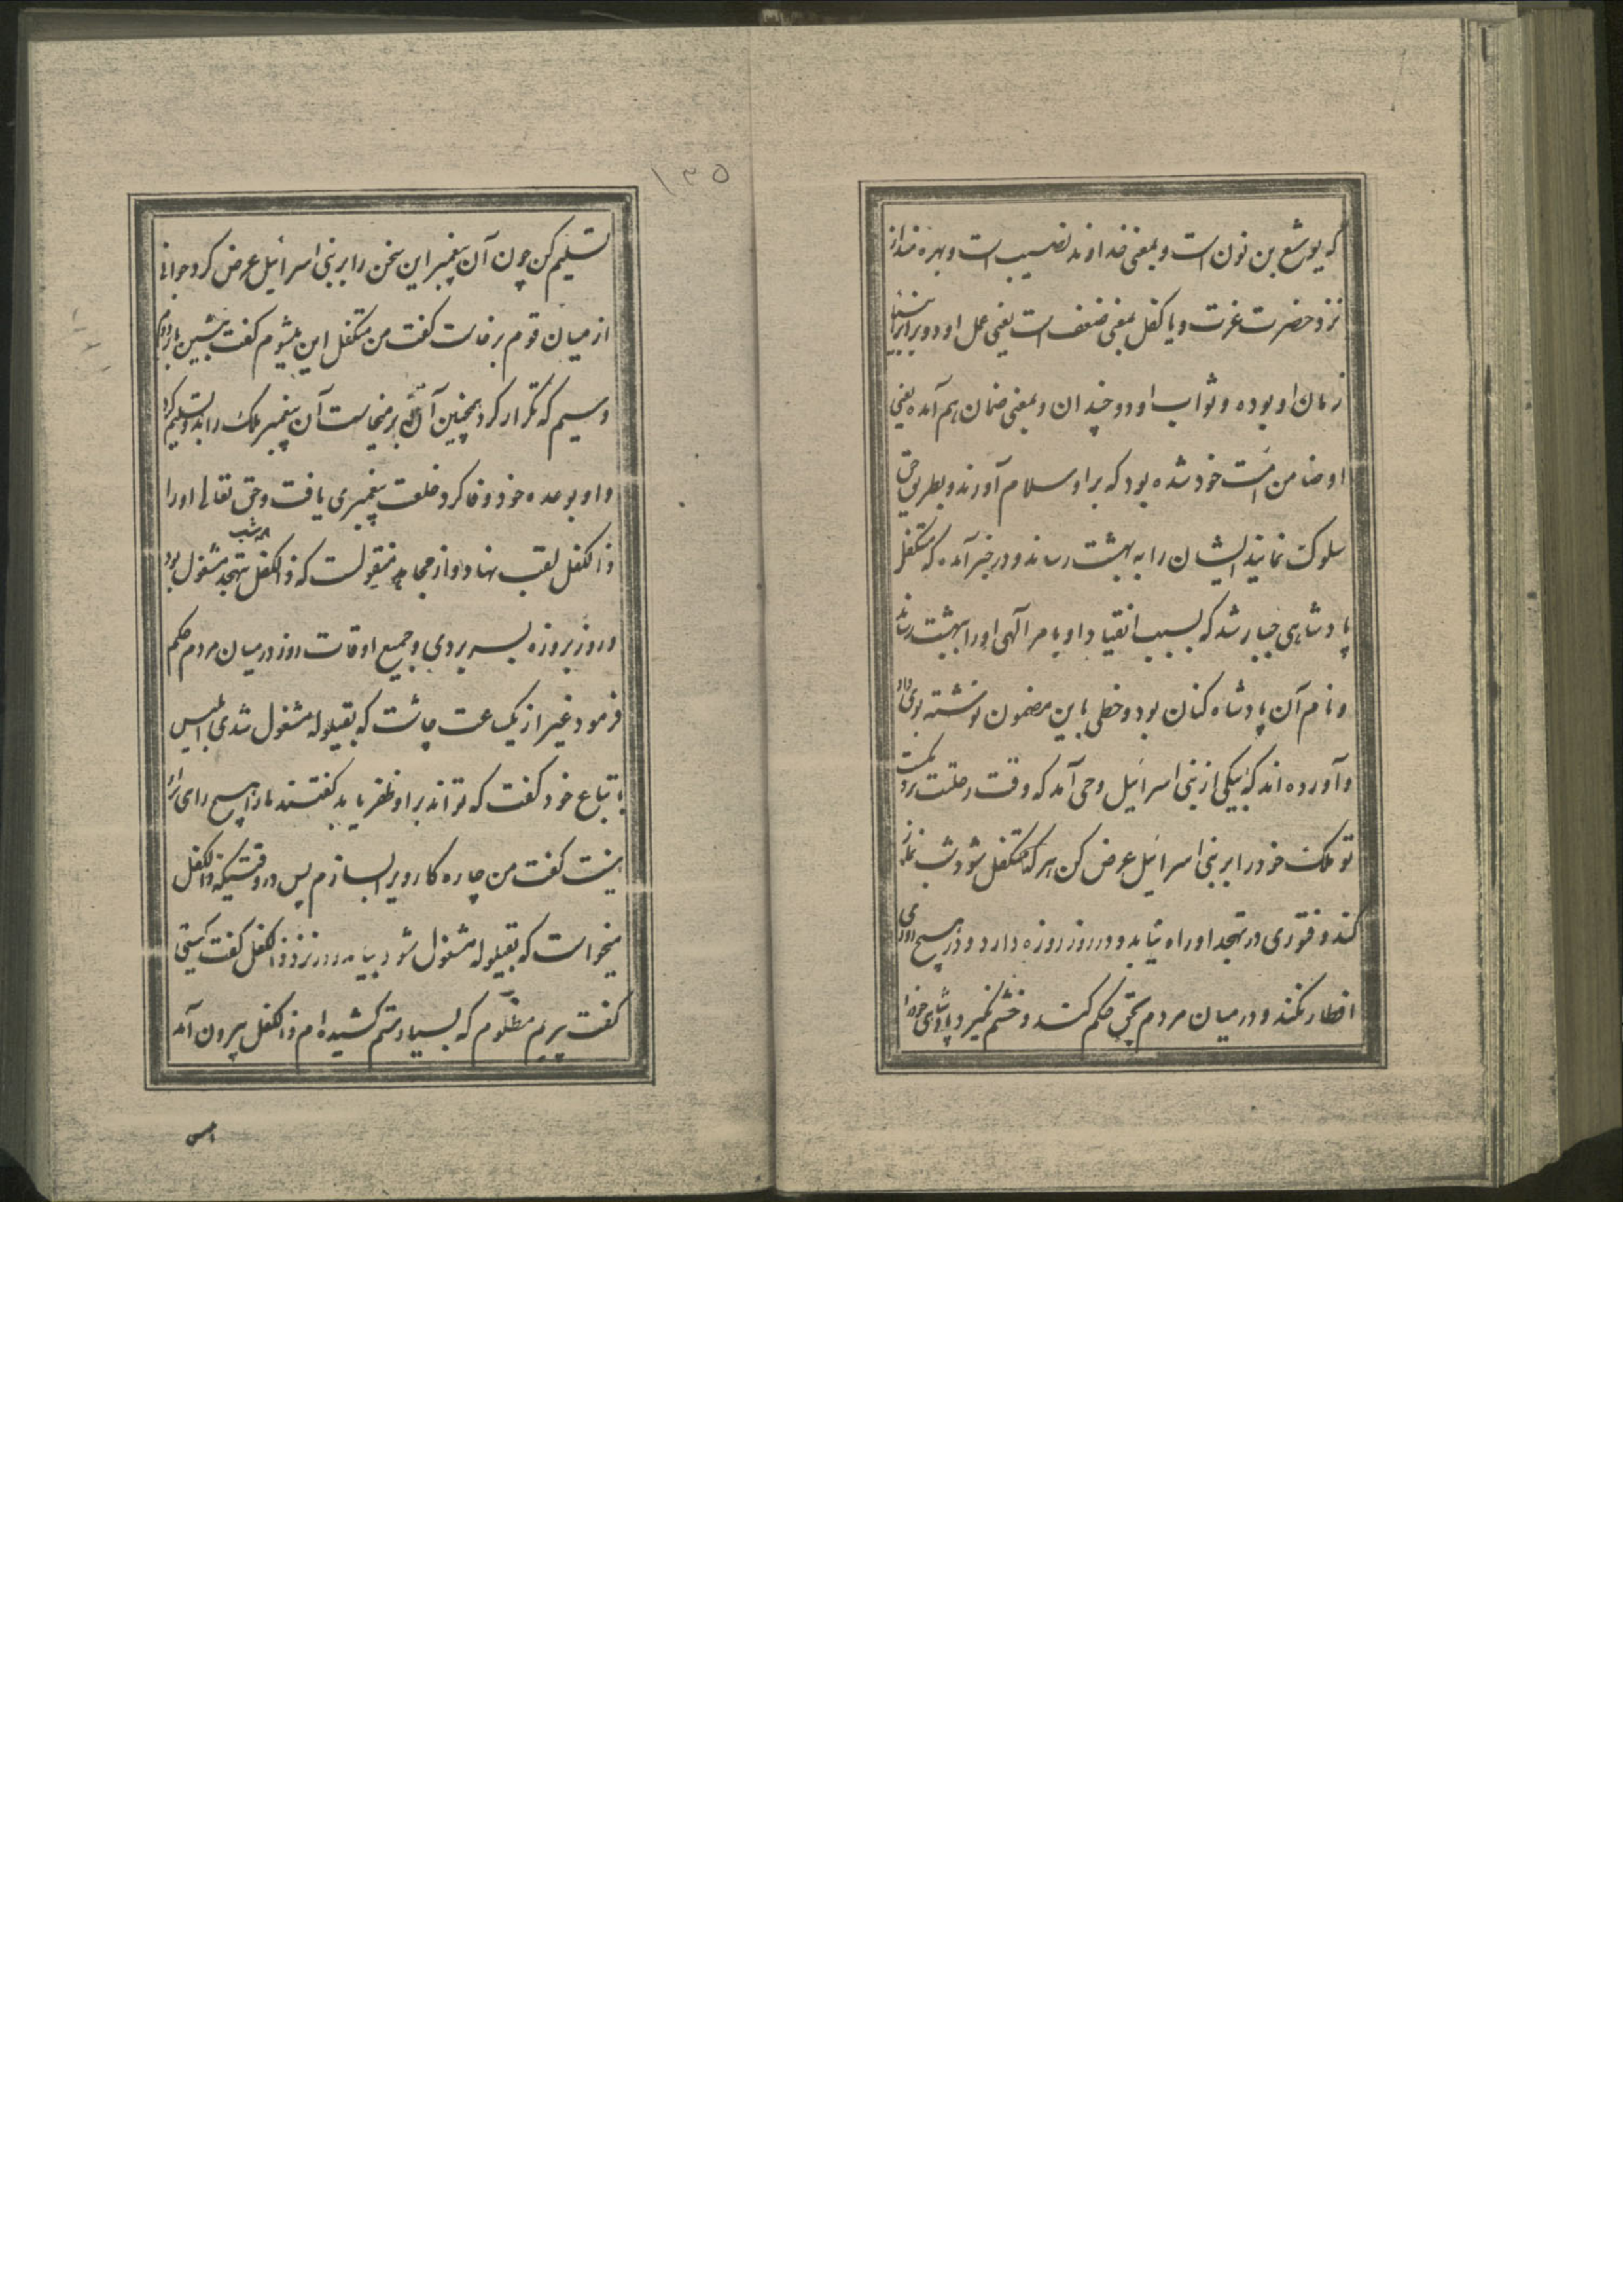 که یوشع بن نون است و بمعنی خداوند نصیب است و بهره مند از
نزد حضرت عزت و یا کفل بمعنی ضعف است یعنی عمل او دو برابر انبیاء
زمان او بوده و ثواب او دو چندان و بمعنی ضمان هم آمده یعنی
او ضامن امت خود شده بود که براو سلام آورند و بطریق حق
سلوک نمایند ایشان را به بهشت رساند و در خبر آمده که متکفل
پادشاهی جبار شد که بسبب انقیاد او بامر آلهی او را ببهشت رساند
و نام آن پادشاه کنان بود و خطی باین مضمون نوشته بوی داد
و آورده اند که بیکی از بنی اسرائیل وحی آمد که وقت رحلت
تو ملک خود را بر بنی اسرائیل عرض کن هر که متکفل شود شب نماز
کند و فتوری در تهجد او راه نیابد و در روز روزه دارد و در هیچ روزی
افطار نکند و در میان مردم بحق حکم کند و خشم نگیرد پادشاهی خود را
۱۳۵
تسلیم کن چون آن پیغمبر این سخن را بر بنی اسرائیل عرض کرد جوانی
از میان قوم برخاست گفت من متکفل این میشوم گفت بنشین بار دوم
و سیم که تکرار کرد همچنین آن برمیخاست آن پیغمبر ملک را بدو تسلیم کرد
و او بوعده خود وفا کرد خلعت پیغمبری یافت و حق تعالی او را
ذالکفل لقب نهاد و از مجاهد منقولست که ذالکفل هر شب بتهجد مشغول بود
و روز بروزه بسر بردی و جمیع اوقات روز در میان مردم حکم
فرمود غیر از یکساعت چاشت که بقیلوله مشغول شدی ابلیس
با تباع خود گفت که تواند براو ظفر یابد گفتند ما را هیچ رای برآن
نیست گفت من چاره کار ویرا بسازم پس در وقتیکه ذالکفل
میخواست که بقیلوله مشغول شود بیامد و در نزد ذالکفل گفت کیستی
گفت پیریم مظلوم که بسیار ستم کشیده ام ذالکفل بیرون آمد